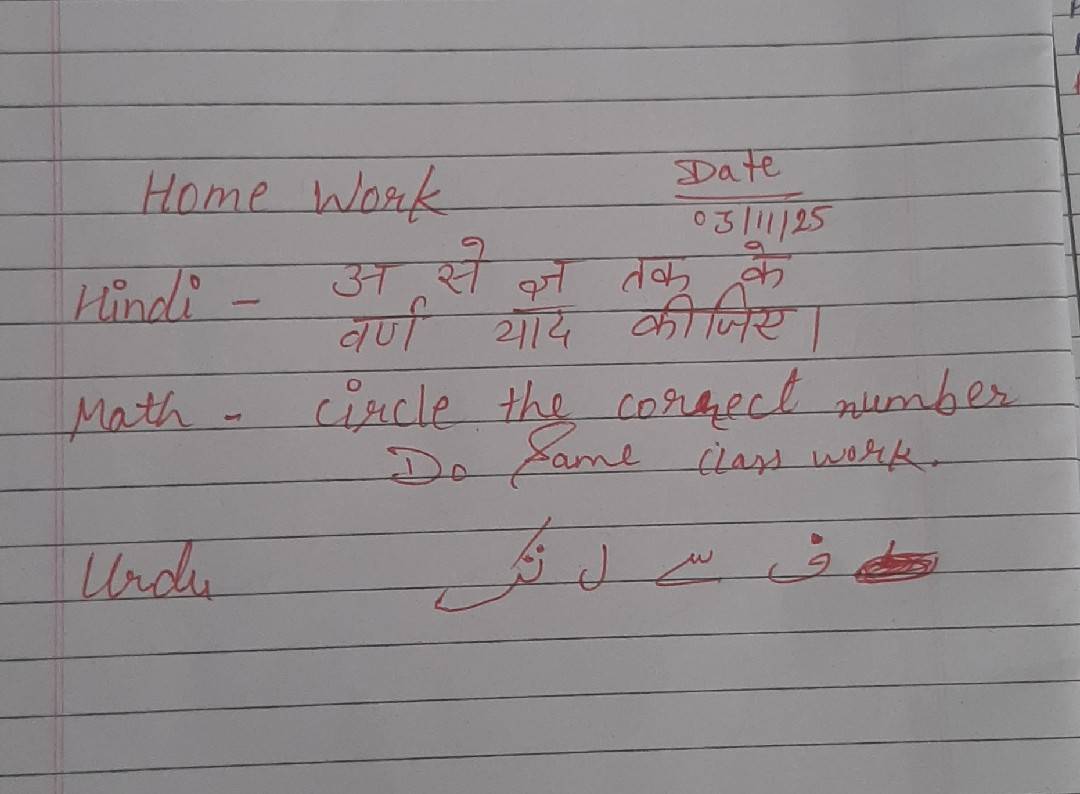 Home Work
Date
03/11/25
Hindi - अ से ज्ञ तक के
वर्ण याद कीजिए।
Math - circle the correct number
Do Same class work.
Urdu ف سے ل تک